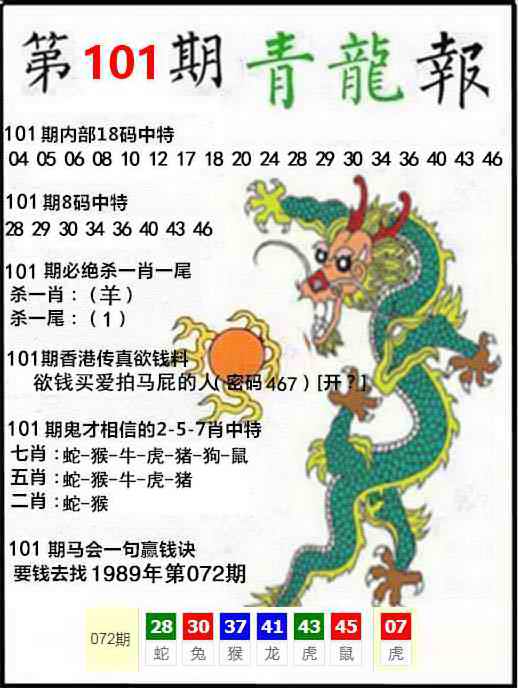 第101期青龍報
101期内部18码中特
04 05 06 08 10 12 17 18 20 24 28 29 30 34 36 40 43 46
101期8码中特
28 29 30 34 36 40 43 46
101期必绝杀一肖一尾
杀一肖：（羊）
杀一尾：（1）
101期香港传真欲钱料
欲钱买爱拍马屁的人(密码467）[开？]
101期鬼才相信的2-5-7肖中特
七肖：蛇-猴-牛-虎-猪-狗-鼠
五肖：蛇-猴-牛-虎-猪
二肖：蛇-猴
101期马会一句赢钱诀
要钱去找1989年第072期
072期 28 30 37 41 43 45 07
蛇 兔 猴 龙 虎 鼠 虎